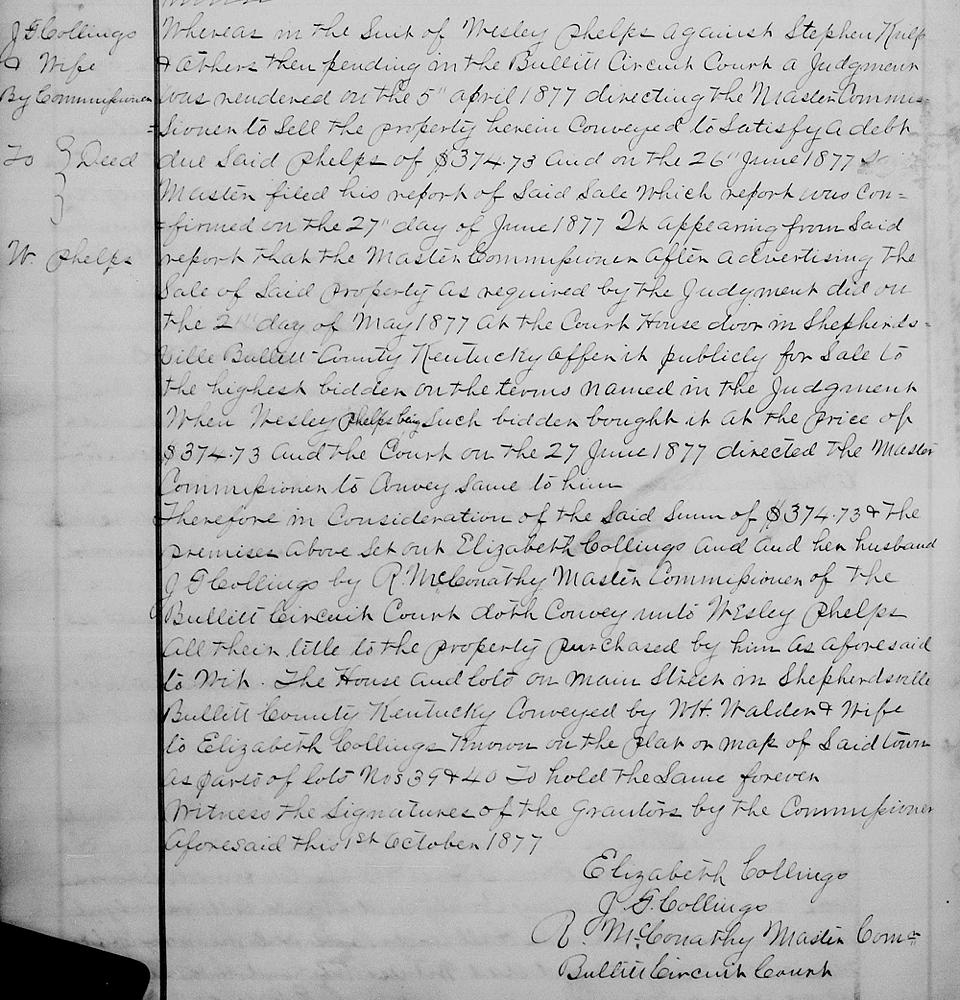 J G Collings
& Wife
By Commissioner
To } Deed
W. Phelps
Whereas in the Suit of Wesley Phelps against Stephen
& Others then pending in the Bullitt Circuit Court a Judgment
was rendered on the 5" april 1877 directing the Master Commis=
=sioner to Sell the property herein Conveyed to Satisfy a debt
due Said Phelps of $374.73 and on the 26" June 1877
Master filed his report of Said Sale Which report was Con=
=firmed on the 27" day of June 1877 It appearing from Said
report that the Master Commissioner after advertising the
Sale of Said Property as required by the Judgment did on
the 21" day of May 1877 at the Court House door in Shepherds=
ville Bullitt County Kentucky offer it publicly for Sale to
the highest bidder on the terms named in the Judgment
When Wesley Phelps being Such bidder bought it at the price of
$374.73 and the Court on the 27 June 1877 directed the Master
Commissioner to Convey Same to him
Therefore in Consideration of the Said Sum of $374.73 & the
premises above Set out Elizabeth Collings and and her husband
J G Collings by R. McConathy Master Commissioner of the
Bullitt Circuit Court doth Convey unto Wesley Phelps
all their title to the property purchased by him as aforesaid
to Wit. The House and lots on main Street in Shepherdsville
Bullitt County Kentucky Conveyed by WH. Walden & Wife
to Elizabeth Collings Known on the plat or map of Said town
as parts of lots Nos 39 & 40 To hold the Same forever
Witness the Signatures of the Grantors by the Commissioner
aforesaid this 1st October 1877
Elizabeth Collings
J. G. Collings
R. McConathy Master Com=
Bullitt Circuit Court